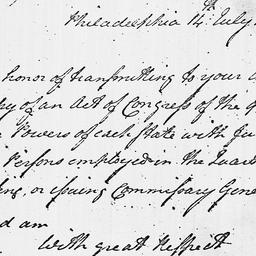 Philadelphia 14th July
honor of transmitting to your
of an Act of Congress of the
Powers of each State with
Persons employed in the
or issuing Commissary
am
with great Respect